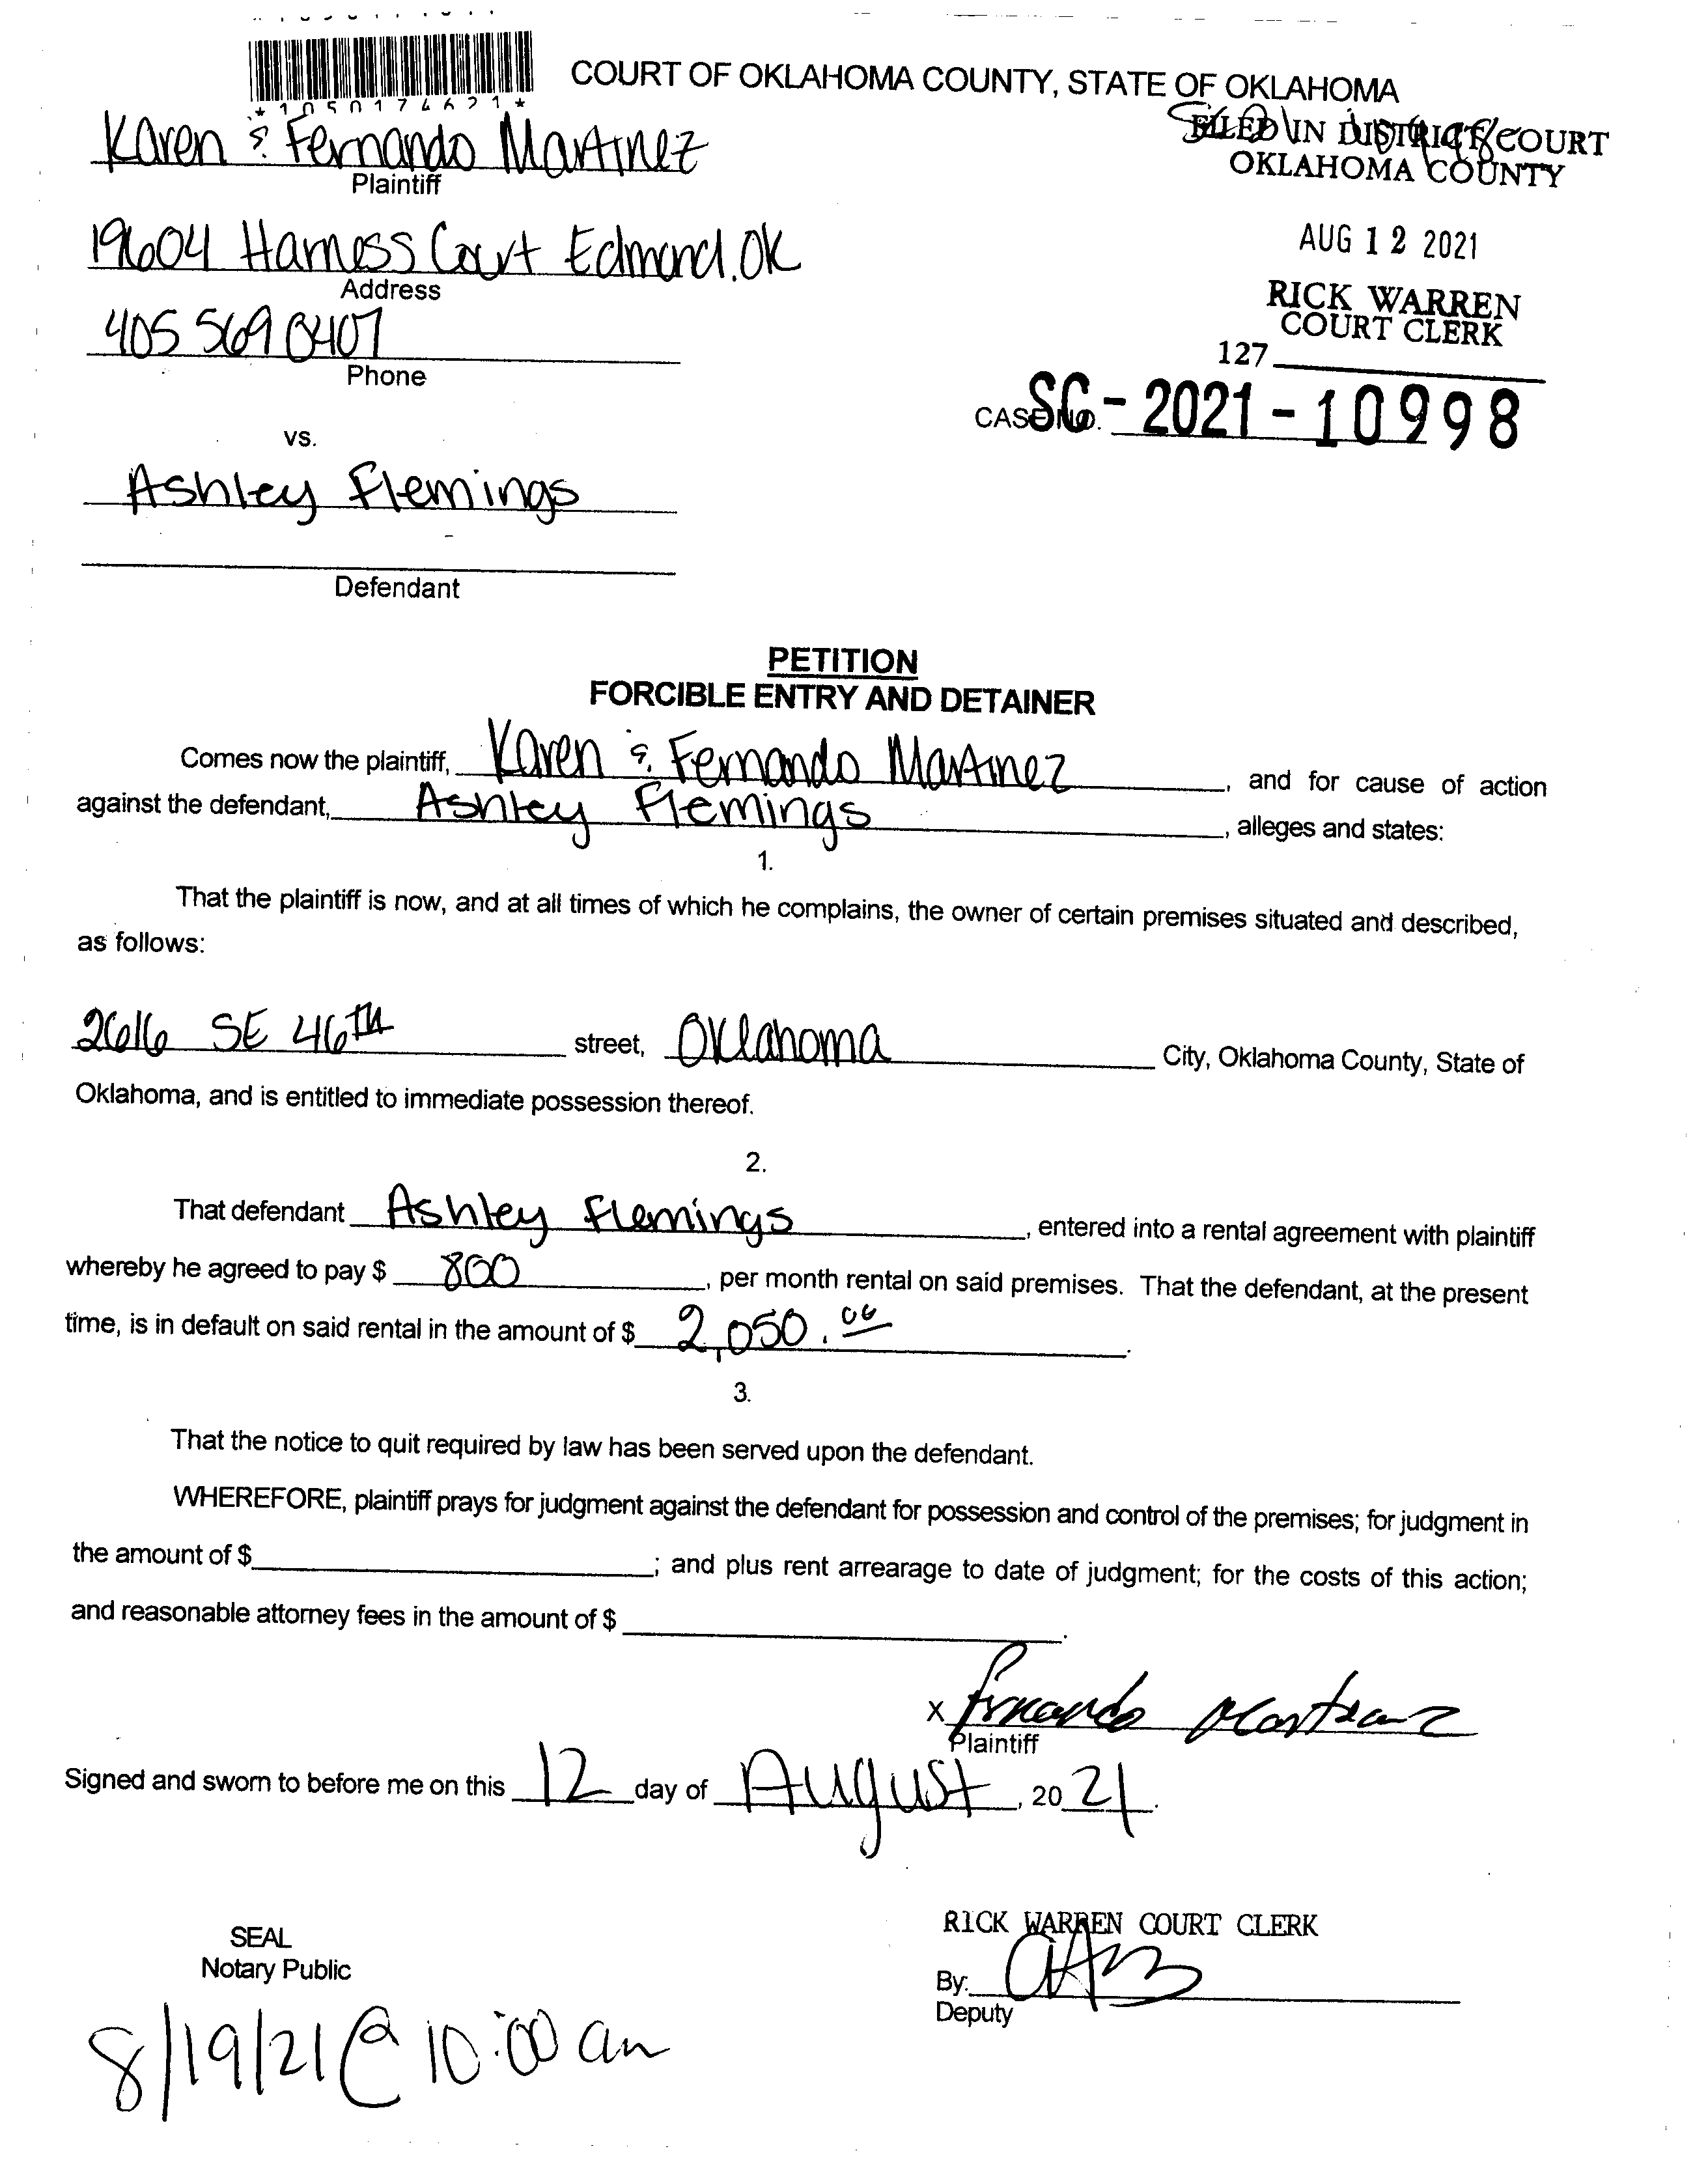 *1050174621*
COURT OF OKLAHOMA COUNTY, STATE OF OKLAHOMA
Karen & Fernando Martinez
Plaintiff
FILED IN DISTRICT COURT
OKLAHOMA COUNTY
19604 Harness Court Edmond, OK
Address
AUG 12 2021
405 569 0407
Phone
RICK WARREN
COURT CLERK
127
CASE NO. SC-2021-10998
vs.
Ashley Flemings
Defendant
PETITION
FORCIBLE ENTRY AND DETAINER
Comes now the plaintiff, Karen & Fernando Martinez, and for cause of action
against the defendant, Ashley Flemings, alleges and states:
1.
That the plaintiff is now, and at all times of which he complains, the owner of certain premises situated and described,
as follows:
2616 SE 46TH street, Oklahoma City, Oklahoma County, State of
Oklahoma, and is entitled to immediate possession thereof.
2.
That defendant Ashley Flemings, entered into a rental agreement with plaintiff
whereby he agreed to pay $ 800, per month rental on said premises. That the defendant, at the present
time, is in default on said rental in the amount of $ 2,050.00.
3.
That the notice to quit required by law has been served upon the defendant.
WHEREFORE, plaintiff prays for judgment against the defendant for possession and control of the premises; for judgment in
the amount of $; and plus rent arrearage to date of judgment; for the costs of this action;
and reasonable attorney fees in the amount of $.
X Fernando Martinez
Plaintiff
Signed and sworn to before me on this 12 day of August, 2021.
SEAL
Notary Public
RICK WARREN COURT CLERK
By:
Deputy
8/19/21 @ 10:00 am